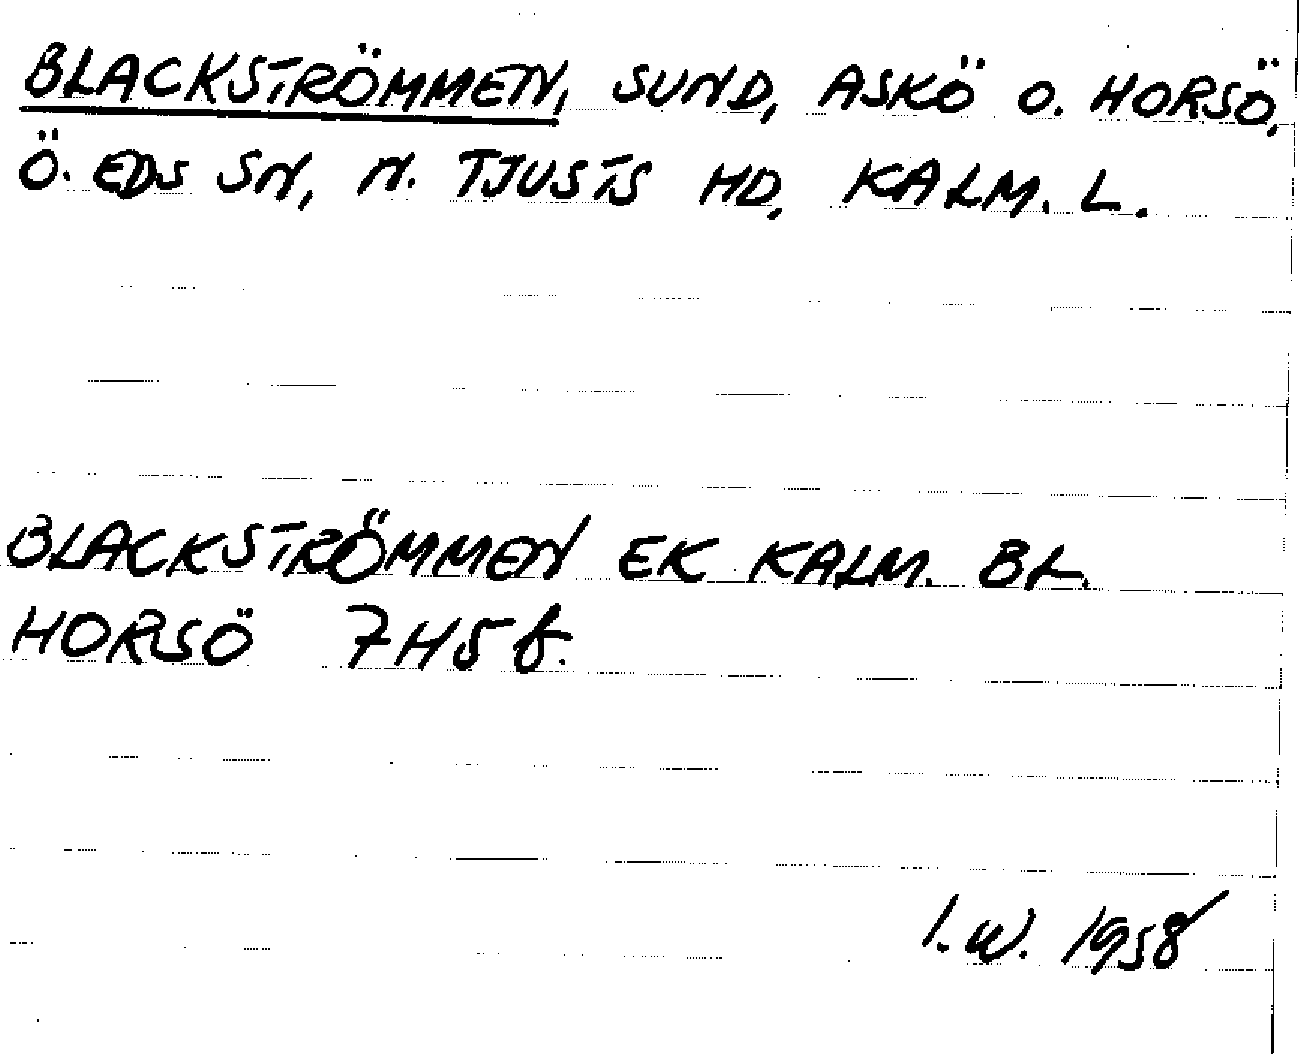 BLACKSTRÖMMEN, SUND, ASKÖ O. HORSÖ,
Ö. EDS SN, N. TJUSTS HD, KALM. L.
BLACKSTRÖMMEN EK KALM. BL.
HORSÖ 7H5f.
I.W. 1958